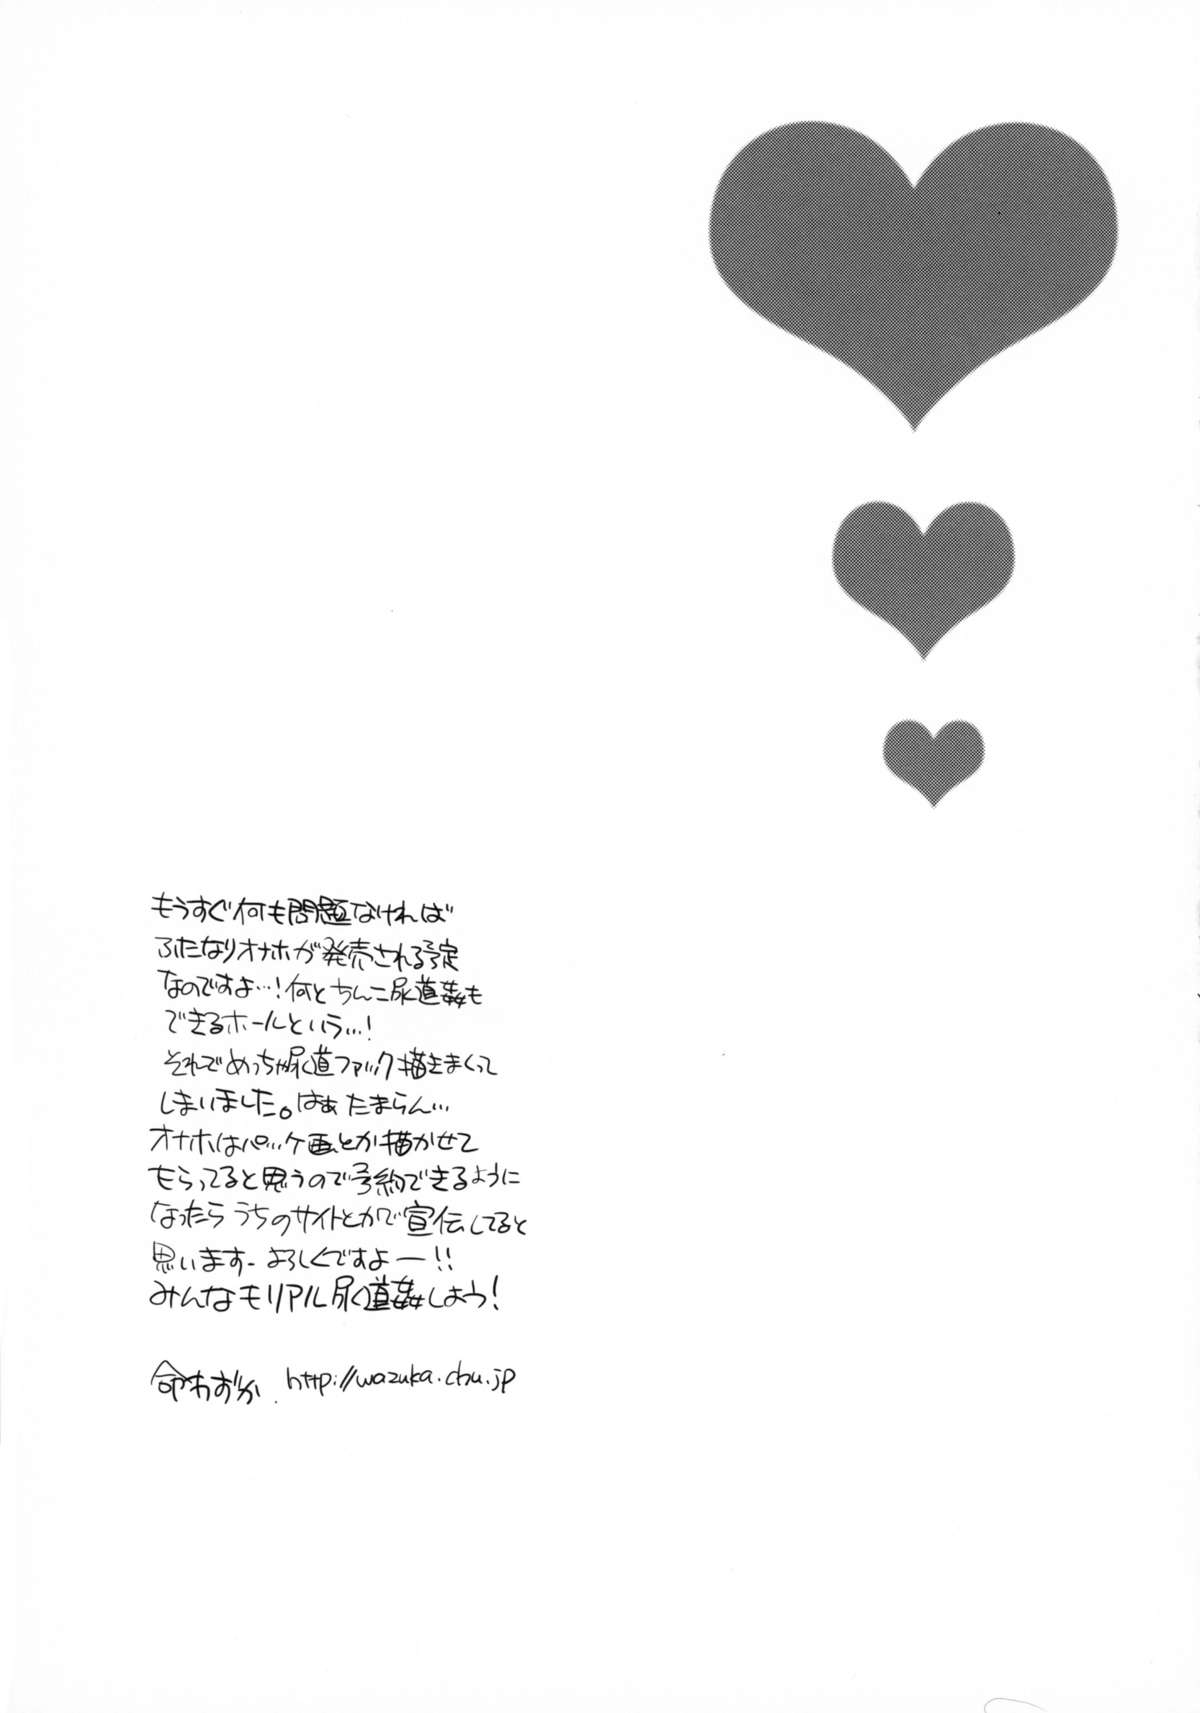 もうすぐ何も問題なければ
ふたなりオナホが発売される予定
なのですよ…!何とちんこ尿道姦も
できるホールという…!
それでめっちゃ尿道ファック描きまくって
しまいました。はぁたまらん…
オナホはパッケ画とか描かせて
もらってると思うので予約できるように
なったらうちのサイトとかで宣伝してると
思います-よろしくですよー!!
みんなもリアル尿道姦しよう!
命わずか. http://wazuka.chu.jp